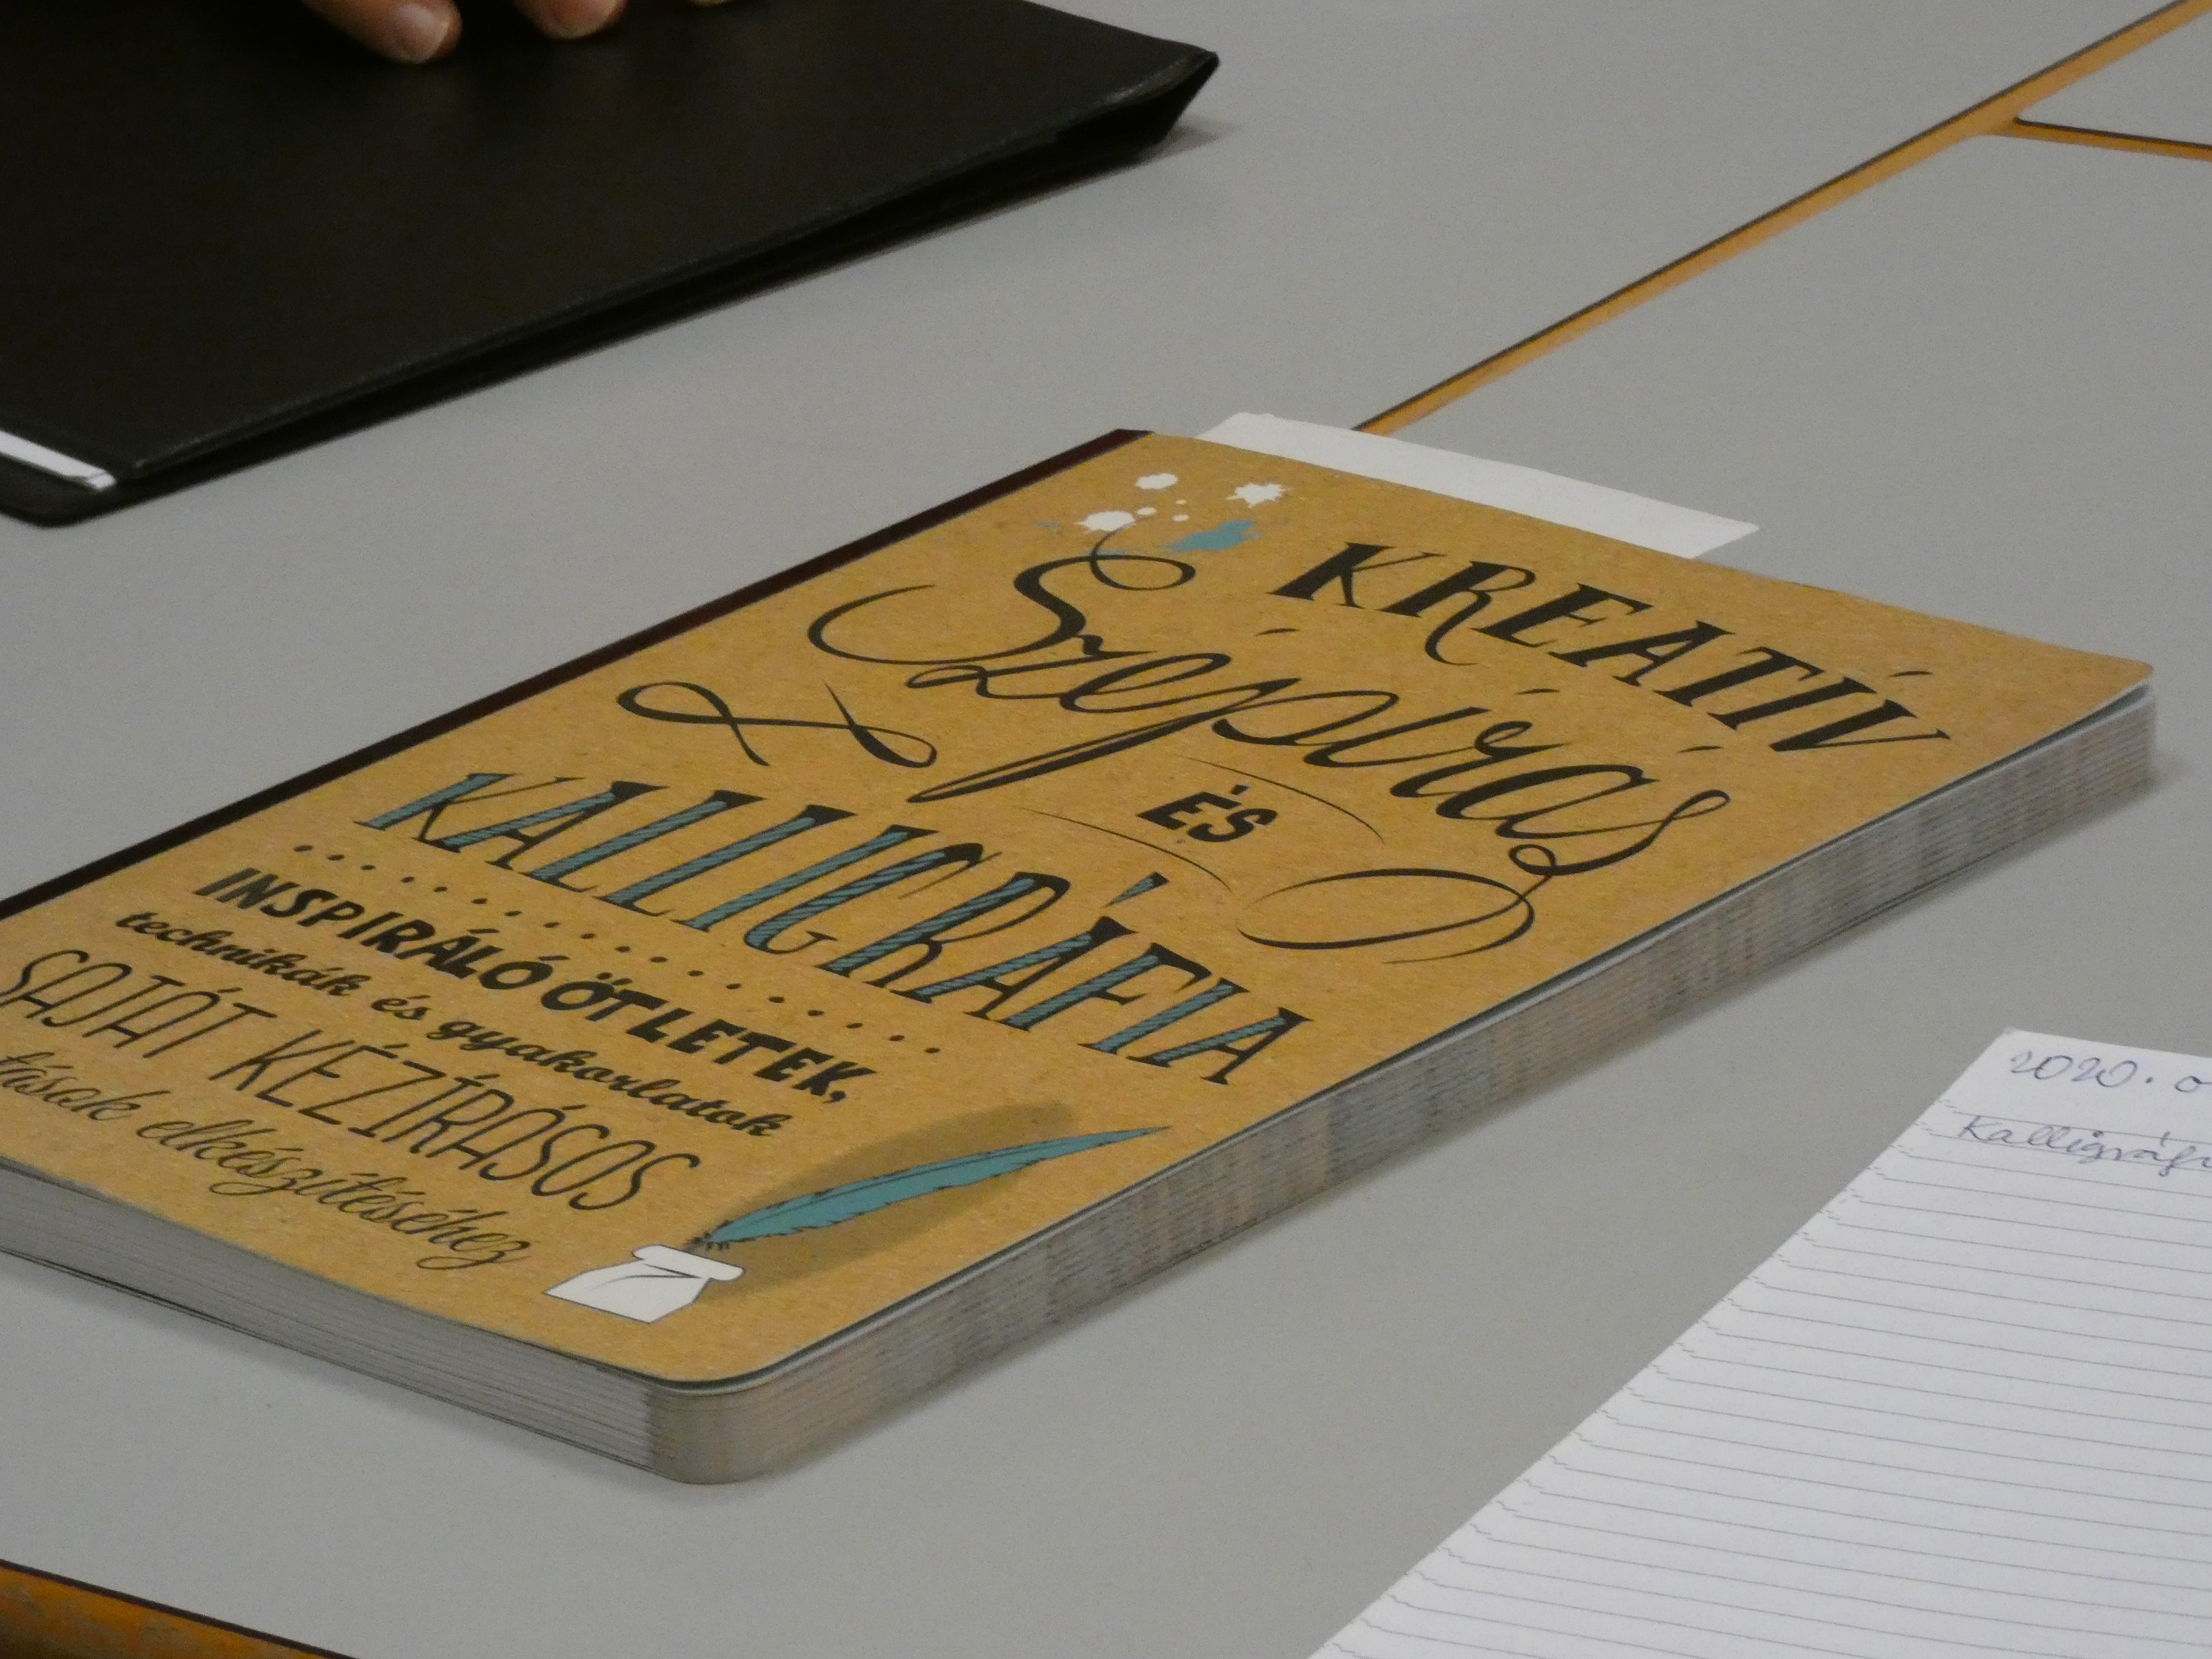 KREATÍV
Szépírás
ÉS
KALLIGRÁFIA
INSPIRÁLÓ ÖTLETEK,
technikák és gyakorlatok
SAJÁT KÉZÍRÁSOS
elkészítéséhez
2020.